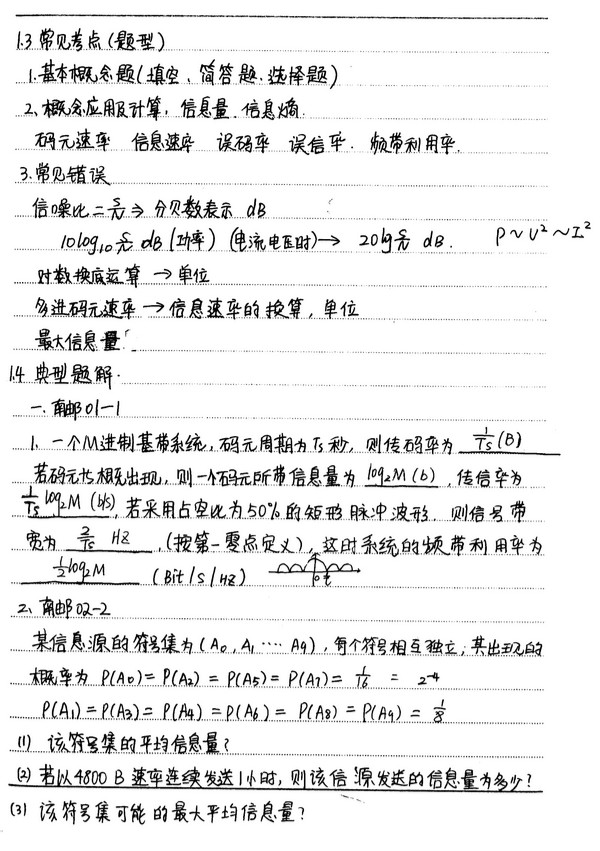 1.3 常见考点(题型)
1.基本概念题(填空、简答题、选择题)
2、概念应用及计算,信息量.信息熵.
码元速率 信息速率 误码率 误信率. 频带利用率.
3.常见错误
信噪比=S/N ⇒ 分贝数表示 dB
10log₁₀ S/N dB(功率) (电流电压时)→ 20lg S/N dB. P~V²~I²
对数换底运算 → 单位
多进码元速率 → 信息速率的换算,单位
最大信息量
1.4 典型题解.
一.南邮01-1
1. 一个M进制基带系统,码元周期为Ts秒,则传码率为 1/Ts (B)
若码元等概出现,则一个码元所带信息量为 log₂M (b) ,传信率为
1/Ts log₂M (b/s),若采用占空比为50%的矩形脉冲波形,则信号带
宽为 2/Ts HZ ,(按第一零点定义),这时系统的频带利用率为
½log₂M (Bit/s/HZ)
2、南邮02-2
某信息源的符号集为(A₀,A₁····A9),每个符号相互独立,其出现的
概率为 P(A₀)=P(A₂)=P(A₅)=P(A₇)=1/16 = 2⁻⁴
P(A₁)=P(A₃)=P(A₄)=P(A₆)=P(A₈)=P(A₉)=1/8
(1) 该符号集的平均信息量?
(2) 若以4800 B 速率连续发送1小时,则该信源发送的信息量为多少?
(3) 该符号集可能的最大平均信息量?